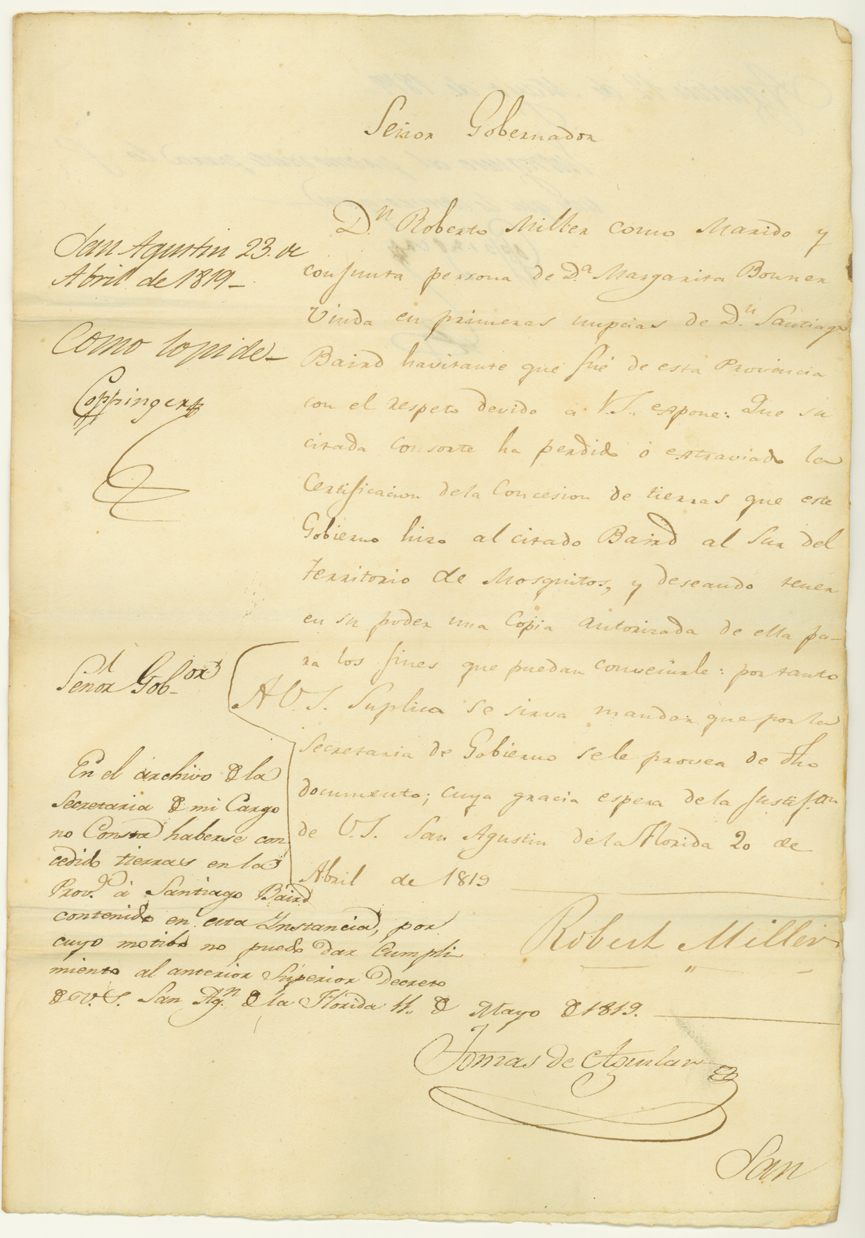 Señor Gobernador
Dn. Roberto Miller como Marido y
conjunta persona de Da. Margarita Bonner
Viuda en primeras nupcias de Dn. Santiago
Baird havitante que fué de esta Provincia
con el respeto devido á V.S. espone: Que su
citada consorte ha perdido ó estraviado la
Certificacion de la Concesion de tierras que este
Gobierno hizo al citado Baird al Sur del
territorio de Mosquitos, y deseando tener
en su poder una Copia autorizada de ella pa-
ra los fines que puedan convenirle: por tanto
A V.S. Suplica se sirva mandar que por la
Secretaria de Gobierno se le provea de dho
documento; cuya gracia espera de la Justifon
de V.S. San Agustin de la Florida 20 de
Abril de 1819
Robert Miller
San Agustin 23 de
Abril de 1819-
Como lo pide-
Coppinger
Señor Gobor
En el archivo de la
Secretaria de mi Cargo
no Consta haberse con
cedido tierras en la
Prova. á Santiago Baird
contenido en esta Instancia, por
cuyo motibo no puedo dar Cumpli-
miento al anterior Superior Decreto
de V.S. San Agn. de la Florida 11. de Mayo de 1819.
Tomas de Aguilar
San